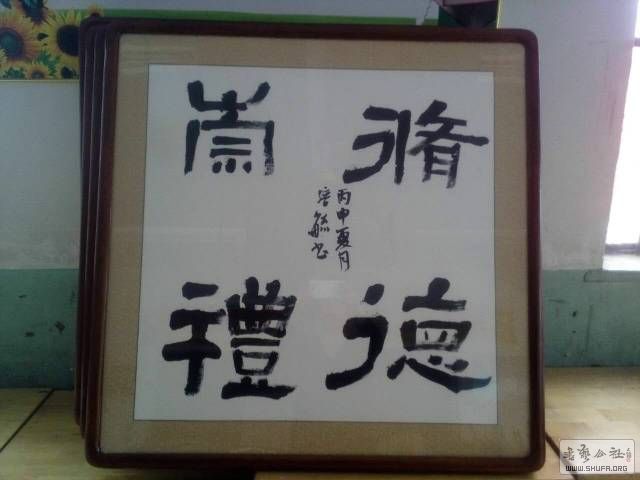 脩德
崇禮
丙申夏月
毓书
書藝公社
WWW.SHUFA.ORG